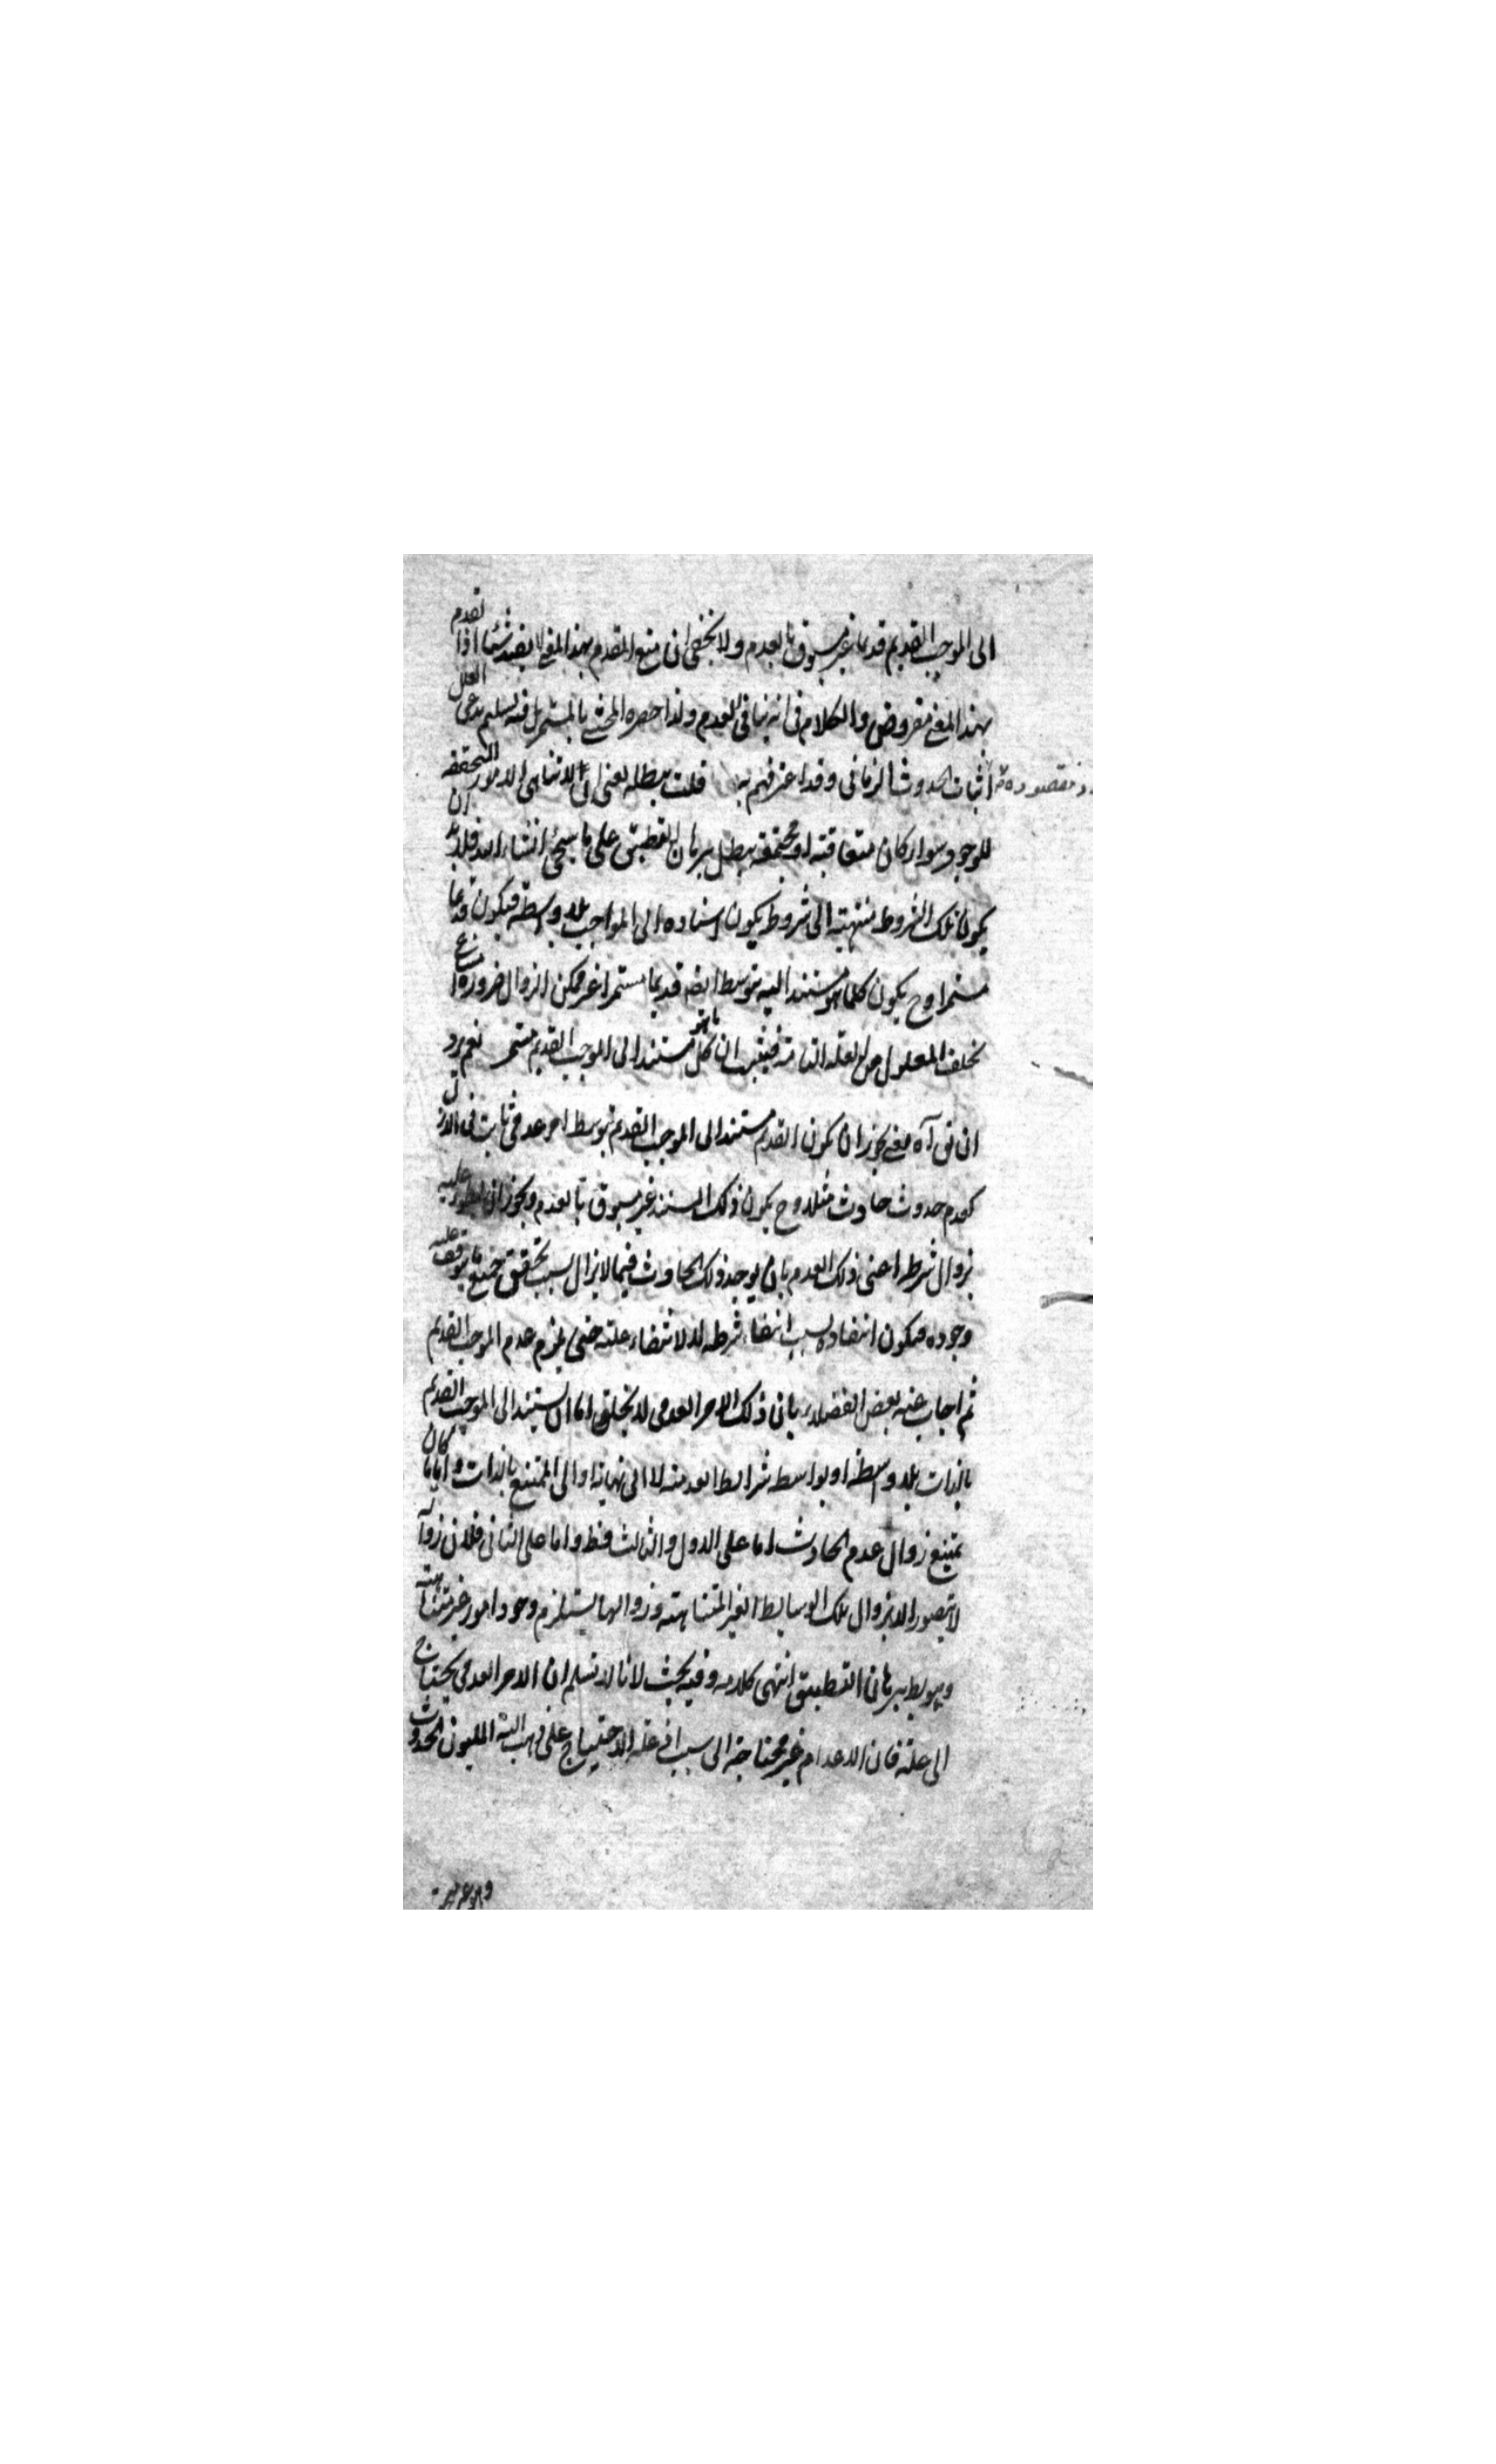 الى الموجب القديم قديما غير مسبوق بالعدم ولا يخفى ان منع المقدم بهذا المعنى لا يفيد شيئا اذا تقدم
بهذا المعنى مفروض والكلام فى انه ينافى العدم ولذا حصره المحشى بالمستمر فيه تسليم مدعى العلل
اثبات الحدوث الزمانى وقد اعترفهم به قلت يبطله يعنى ان لا تناهى الامور المتحققة
للوجود سواء كان متعاقبة او مجتمعة يبطل ببرهان التطبيق على ما سيجئ انشاء الله فلا بد ان
يكون تلك الشروط منتهية الى شروط يكون اسناده الى الواجب بلا وسطة فيكون قديما
مستمرا وح يكون كلما هو مستند اليه بتوسط ايضا قديما مستمرا غير ممكن الزوال ضرورة امتناع
تخلف المعلول عن العلة التامة فيثبت ان كل ما هو مستند الى الموجب القديم مستمر نعم يرد
ان ق آه يعنى يجوز ان يكون القديم مستندا الى الموجب القديم بتوسط امر عدمى ثابت فى الازل
كعدم حدوث حادث مثلا وح يكون ذلك المستند غير مسبوق بالعدم ويجوز ان عليه
بزوال شرطه اعنى ذلك العدم بان يوجد ذلك الحادث فيما لا يزال بسبب تحقق جميع ما يتوقف عليه
وجوده فيكون انتفاؤه بسبب انتفاء شرطه لا لانتفاء علته حتى يلزم عدم الموجب القديم
ثم اجاب عنه بعض الفضلاء بان ذلك الامر العدمى لا يخلو اما ان يستند الى الموجب القديم
بالذات بلا وسطة او بواسطة شرايط العدمية لا الى نهاية او الى الممتنع بالذات و ايا ما كان
يمتنع زوال عدم الحادث اما على الاول والثالث فظ واما على الثانى فلان زواله
لا يتصور الا بزوال تلك الوسايط الغير المتناهية وزوالها يستلزم وجود امور غير متناهية
وهو بط ببرهان التطبيق انتهى كلامه وفيه بحث لانا لا نسلم ان الامر العدمى يحتاج
الى علة فان الاعدام غير محتاجة الى سبب اذ علة الاحتياج على ذهب اليه المليون الحدوث